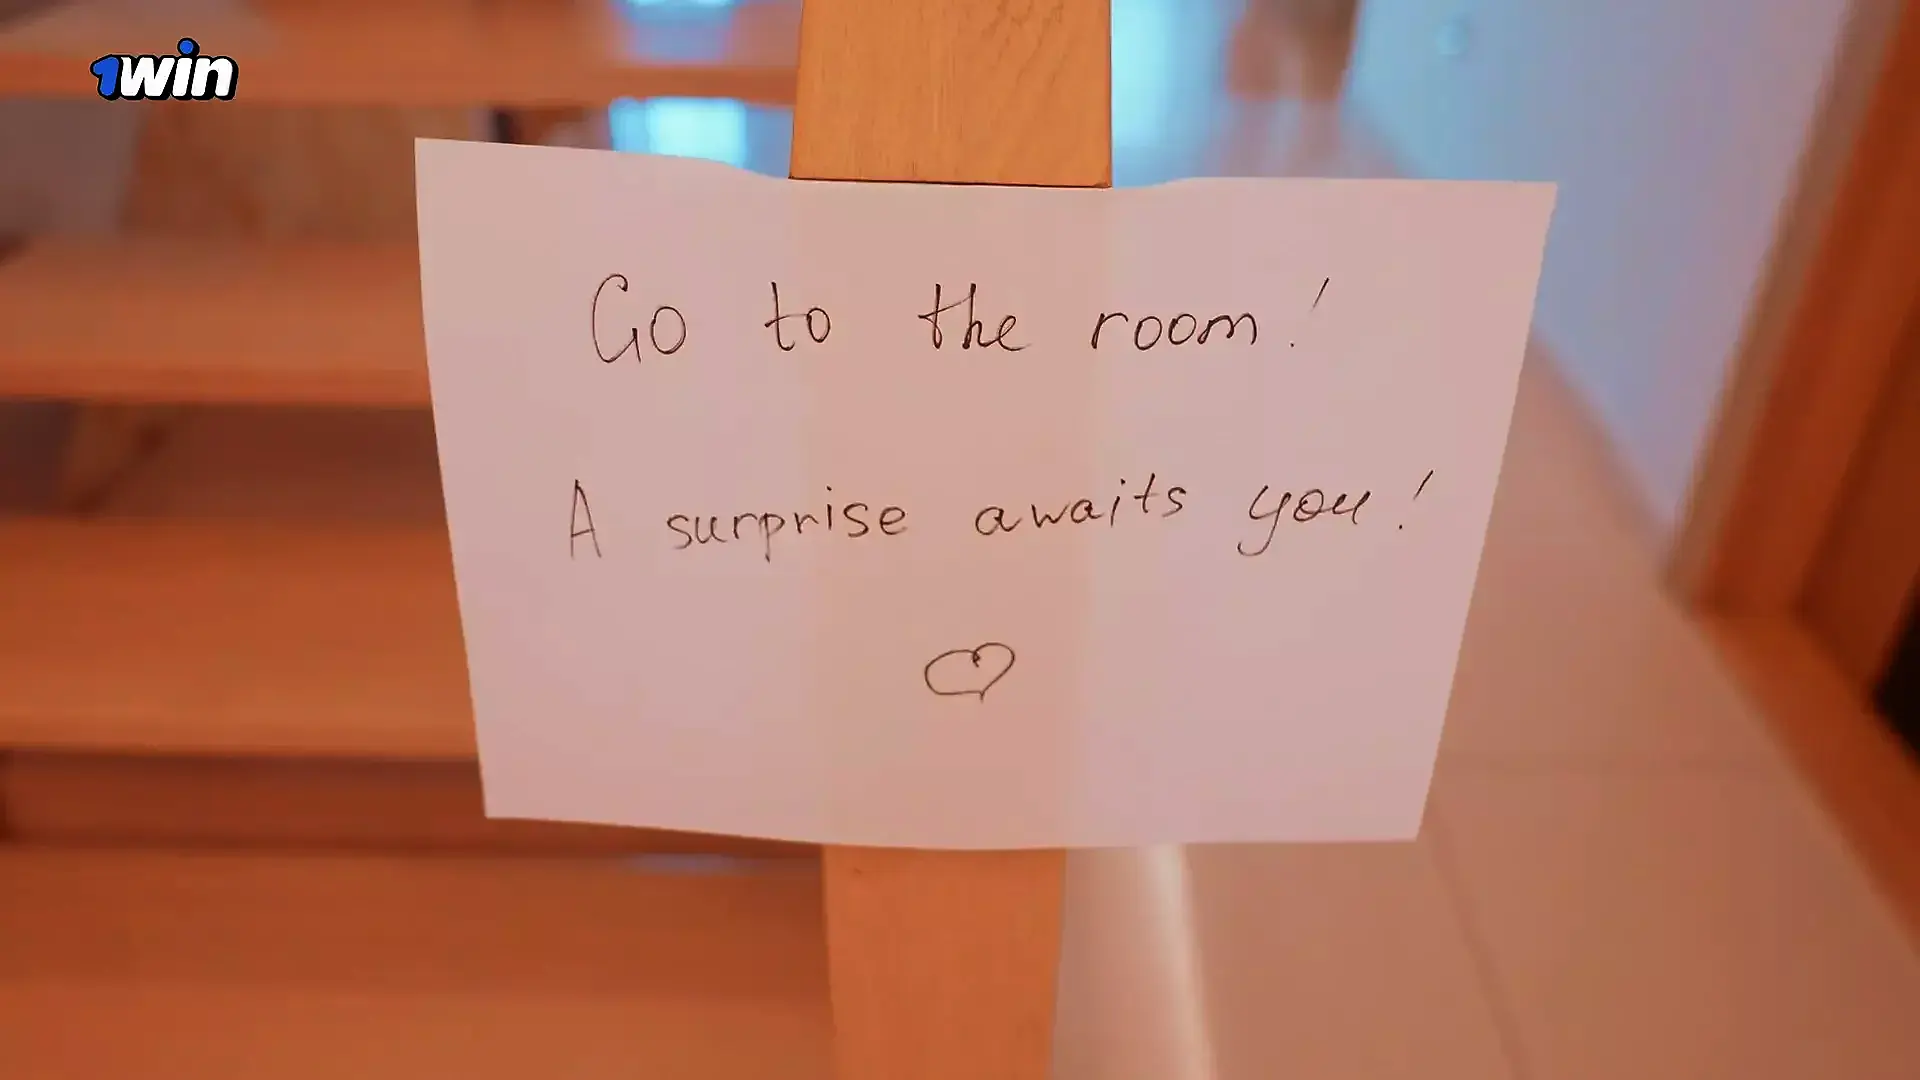 1win
Go to the room!
A surprise awaits you!